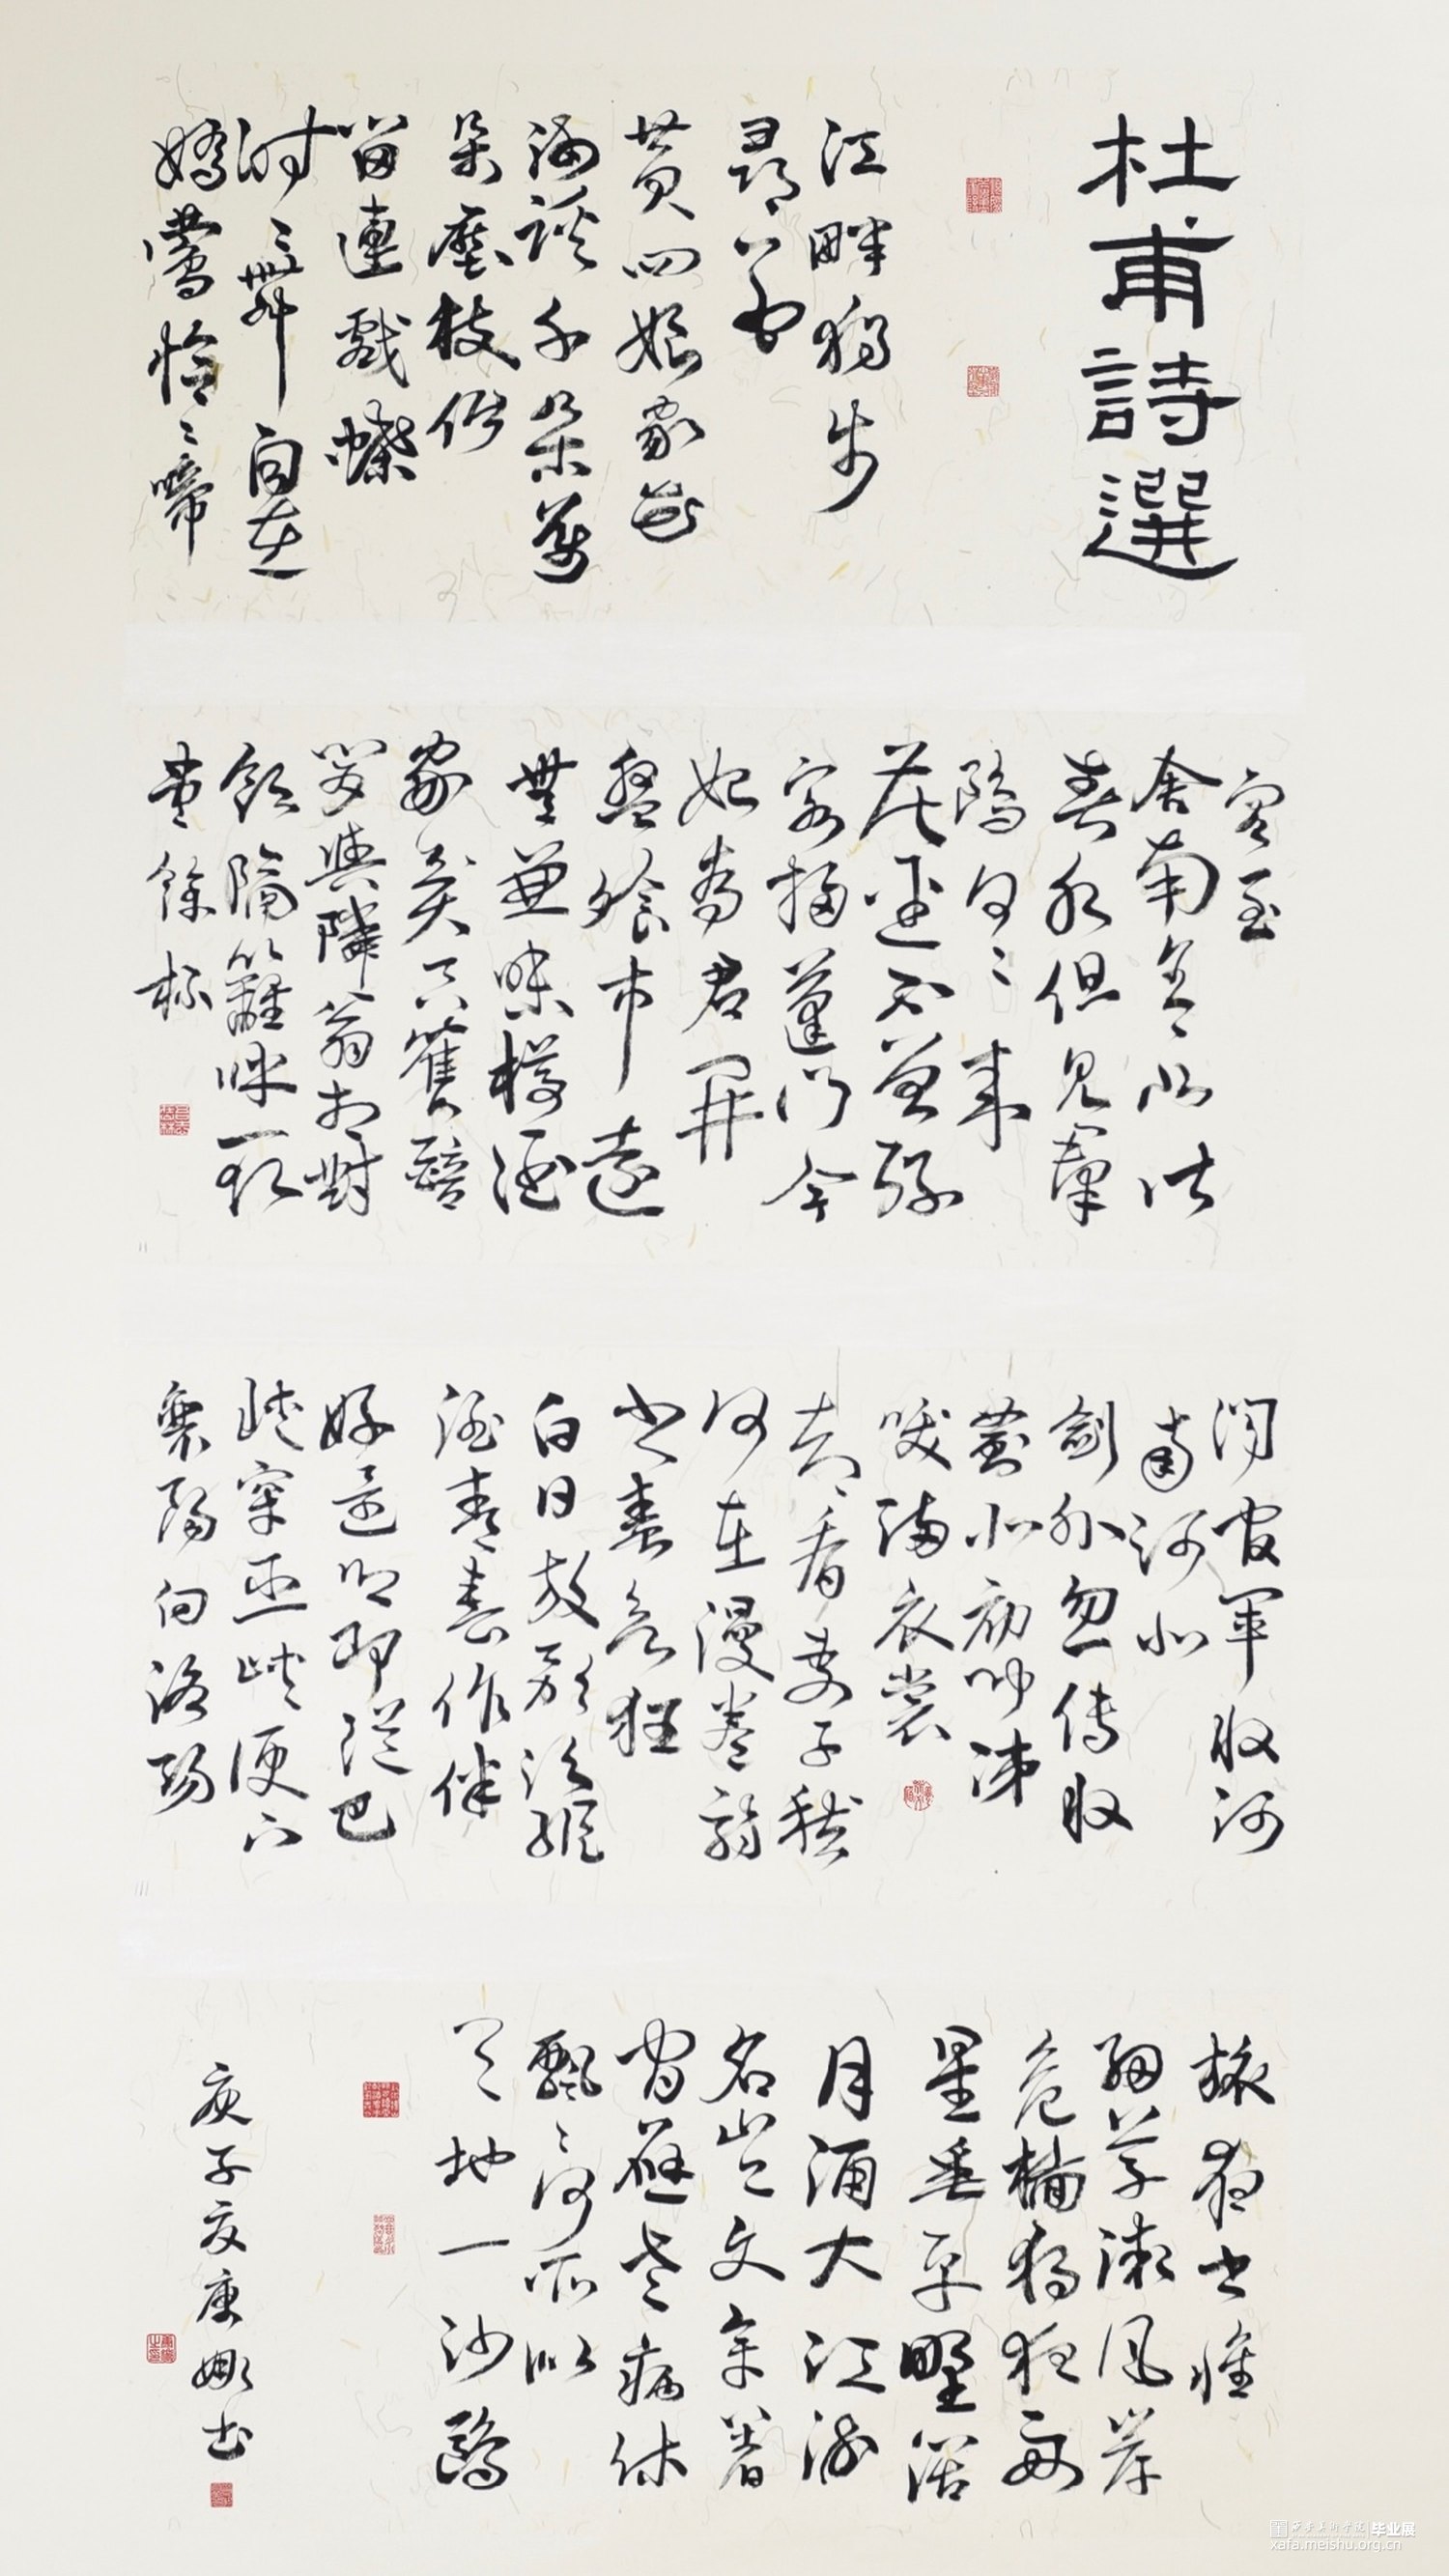 杜甫詩選
江畔獨步
尋花
黃四娘家花
滿蹊千朵萬
朵壓枝低
留連戲蝶
時〻舞自在
嬌鶯恰〻啼
客至
舍南舍北皆
春水但見群
鷗日〻來
花徑不曾緣
客掃蓬門今
始為君開
盤飧市遠
無兼味樽酒
家貧只舊醅
肯與隣翁相對
飲隔籬呼取
盡餘杯
聞官軍收河
南河北
劍外忽傳收
薊北初聞涕
淚滿衣裳
却看妻子愁
何在漫卷詩
書喜欲狂
白日放歌須縱
酒青春作伴
好還鄉即從巴
峽穿巫峽便下
襄陽向洛陽
旅夜書懷
細草微風岸
危檣獨夜舟
星垂平野闊
月涌大江流
名豈文章著
官應老病休
飄〻何所似
天地一沙鷗
庚子夏康娜書
西安美術學院 毕业展
xafa.meishu.org.cn